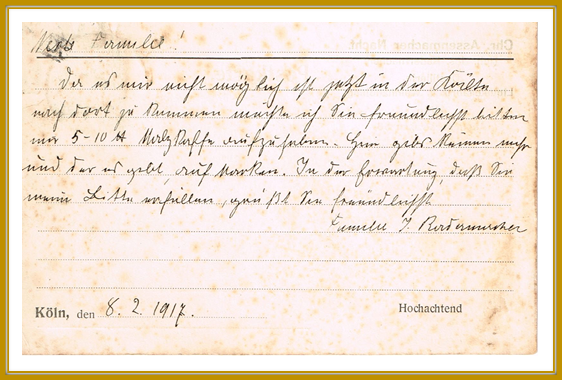 Werte Familie!
Da es mir nicht möglich ist jetzt in der Kälte
nach dort zu kommen möchte ich Sie freundlichst bitten
mir 5-10 ℔ Malzkaffe aufzuheben. Hier gibts keinen mehr
und der es gibt, auf Marken. In der Erwartung, daß Sie
meine Bitte erfüllen, grüßt Sie freundlichst
Familie J. Radermacher
Köln, den 8. 2. 1917.
Hochachtend